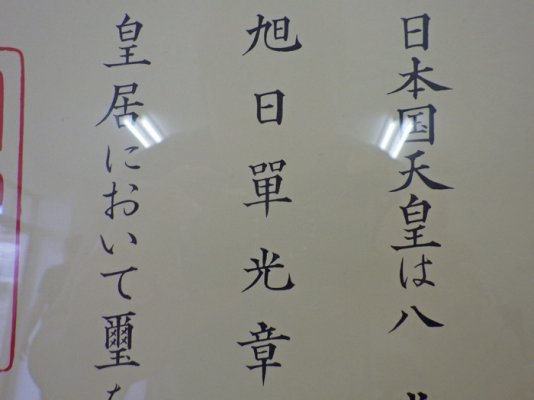 日本国天皇は八
旭日單光章
皇居において璽